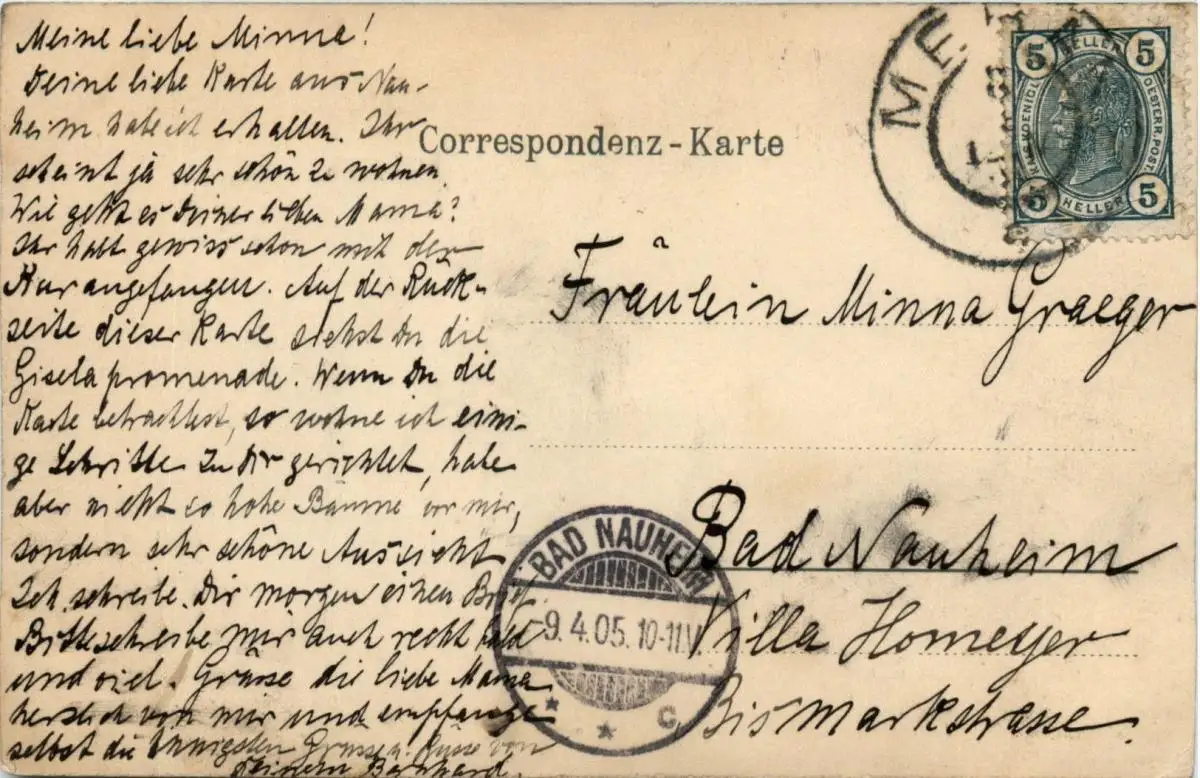 Meine liebe Minna!
Deine liebe Karte aus Nau-
heim habe ich erhalten. Ihr
scheint ja sehr schön zu wohnen.
Wie geht es Deiner lieben Mama?
Ihr habt gewiss schon mit der
Kur angefangen. Auf der Rück-
seite dieser Karte siehst Du die
Giselapromenade. Wenn Du die
Karte betrachtest, so wohne ich eini-
ge Schritte zu Dir gerichtet, habe
aber nicht so hohe Bäume vor mir,
sondern sehr schöne Aussicht
Ich schreibe Dir morgen einen Brief
Bitte schreibe mir auch recht bald
und viel. Grüsse die liebe Mama
herzlich von mir und empfange
selbst die innigsten Grüsse u. Küsse von
Deinem Bernhard.
Correspondenz-Karte
ME
5 HELLER 5
KAIS. KOENIGL. OESTERR. POST
5 HELLER 5
Fräulein Minna Graeger
Bad Nauheim
Villa Homeyer
Bismarkstrasse.
BAD NAUHEIM
-9.4.05.10-11V
* * c